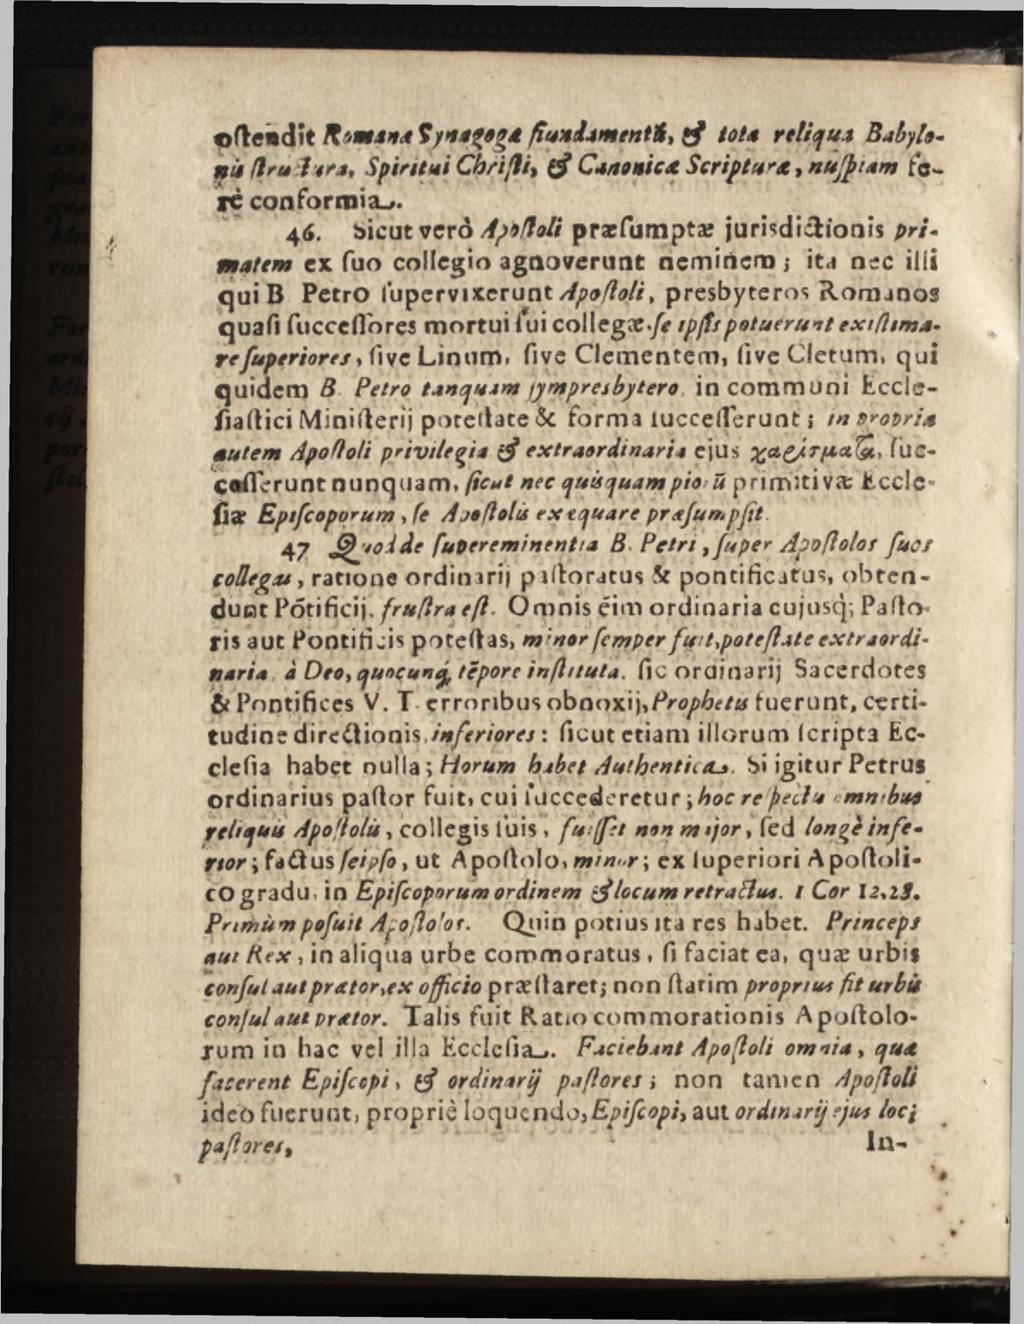 oſtendit Romanæ Synagogæ fundamentũ, & tota reliqua Babylo-
nis ſtructura, Spiritui Chriſti, & Canonicæ Scripturæ, nuſpiam fe-
rè conformia.
46. Sicut verò Apoſtoli præſumptæ jurisdictionis pri-
matem ex ſuo collegio agnoverunt neminem; ita nec illi
qui B Petro ſupervixerunt Apoſtoli, presbyteros Romanos
quaſi ſucceſſores mortui ſui collegæ ſe ipſis potuerunt exiſtima-
re ſuperiores, ſive Linum, ſive Clementem, ſive Cletum, qui
quidem B. Petro tanquam ſympresbytero, in communi Eccle-
ſiaſtici Miniſterij poteſtate & forma ſucceſſerunt; in propria
autem Apoſtoli privilegia & extraordinaria ejus χαρίσματα, ſuc-
ceſſerunt nunquam, ſicut nec quisquam piorũ primitivæ Eccle-
ſiæ Epiſcoporum, ſe Apoſtolis exæquare præſumpſit.
47 Quod de ſupereminentia B. Petri, ſuper Apoſtolos ſuos
collegas, ratione ordinarij paſtoratus & pontificatus, obten-
dunt Põtificij, fruſtra eſt. Omnis ẽim ordinaria cujusq; Paſto-
ris aut Pontificis poteſtas, minor ſemper fuit, poteſtate extraordi-
naria, à Deo, quocunq, tẽpore inſtituta. ſic ordinarij Sacerdotes
& Pontifices V. T. erroribus obnoxij, Prophetis fuerunt, certi-
tudine directionis, inferiores: ſicut etiam illorum ſcripta Ec-
cleſia habet nulla; Horum habet Authentica. Si igitur Petrus
ordinarius paſtor fuit, cui ſuccederetur; hoc reſpectu omnibus
reliquis Apoſtolis, collegis ſuis, fuiſſet non major, ſed longè infe-
rior; factus ſeipſo, ut Apoſtolo, minor; ex ſuperiori Apoſtoli-
co gradu, in Epiſcoporum ordinem & locum retractus. 1 Cor 12,28.
Primùm poſuit Apoſtolos. Quin potius ita res habet. Princeps
aut Rex, in aliqua urbe commoratus, ſi faciat ea, quæ urbis
conſul aut prætor, ex officio præſtaret; non ſtatim proprius fit urbis
conſul aut prætor. Talis fuit Ratio commorationis Apoſtolo-
rum in hac vel illa Eccleſia. Faciebant Apoſtoli omnia, quæ
facerent Epiſcopi, & ordinarij paſtores; non tamen Apoſtoli
ideo fuerunt, propriè loquendo, Epiſcopi, aut ordinarij ejus loci
paſtores,
In-